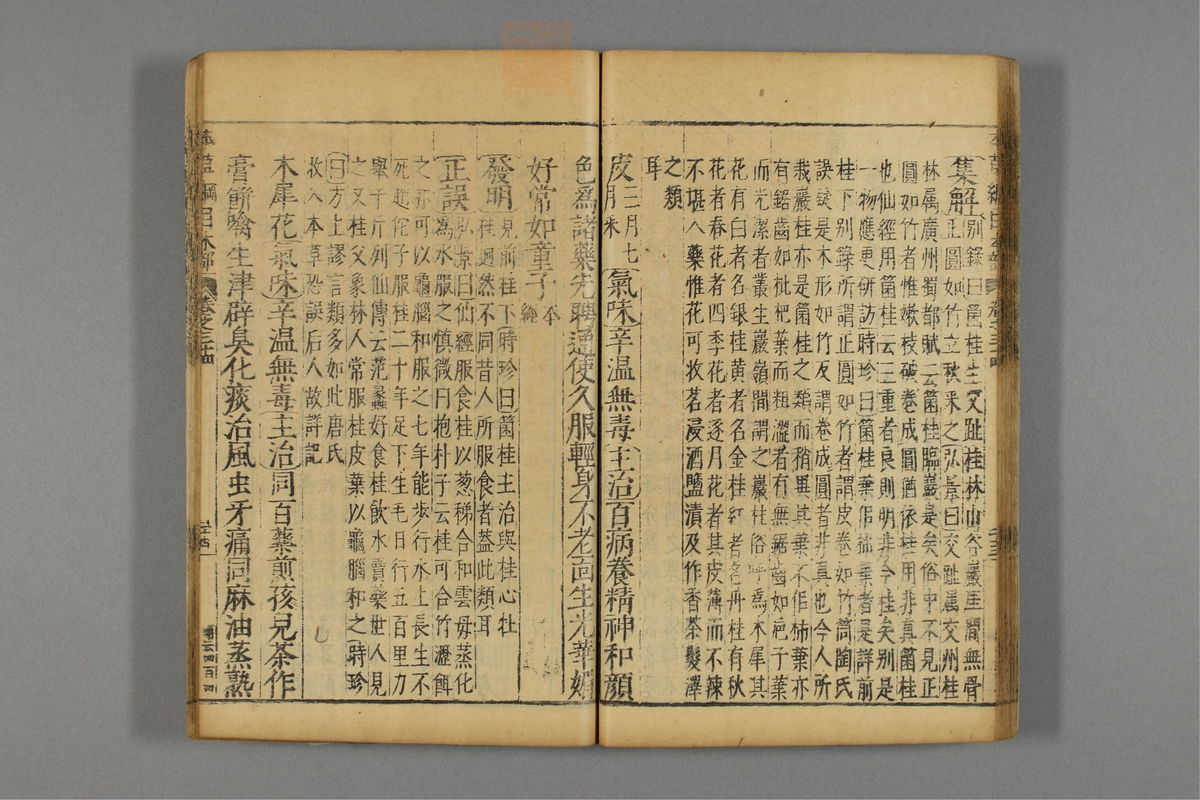 集解別錄曰箘桂生交趾桂林山谷巖崖間無骨
正圓如竹立秋采之弘景曰交趾屬交州桂
林属廣州蜀都賦云箘桂臨巖是矣俗中不見正
圓如竹者惟嫩枝破卷成圓猶依桂用非真箘桂
也仙經用箘桂云三重者良則明非今桂矣别是
一物應更研訪時珍曰箘桂葉似柿葉者是詳前
桂下别錄所謂正圓如竹者謂皮卷如竹筒陶氏
誤疑是木形如竹反謂卷成圓者非真也今人所
栽巖桂亦是箘桂之類而稍異其葉不似柿葉亦
有鋸齒如枇杷葉而粗澀者有無鋸齒如巵子葉
而光潔者叢生巖嶺間謂之巖桂俗呼爲木犀其
花有白者名銀桂黄者名金桂紅者名丹桂有秋
花者春花者四季花者逐月花者其皮薄而不辣
不堪入藥惟花可收茗浸酒鹽漬及作香茶髮澤
之類
耳
皮二月七月采氣味辛温無毒主治百病養精神和顔
色爲諸藥先聘通使久服輕身不老面生光華媚
好常如童子本經
發明見前桂下時珍曰箘桂主治與桂心牡
桂迥然不同昔人所服食者蓋此類耳
正誤弘景曰仙經服食桂以葱稀合和雲母蒸化
爲水服之慎微曰抱朴子云桂可合竹瀝餌
之亦可以龜腦和服之七年能步行水上長生不
死趙佗子服桂二十年足下生毛日行五百里力
舉千斤列仙傳云范蠡好食桂飲水賣藥世人見
之又桂父象林人常服桂皮葉以龜腦和之時珍
曰方上謬言類多如此唐氏
收入本草恐誤后人故詳記
木犀花氣味辛温無毒主治同百藥煎孩兒茶作
膏餅噙生津辟臭化痰治風虫牙痛同麻油蒸熟